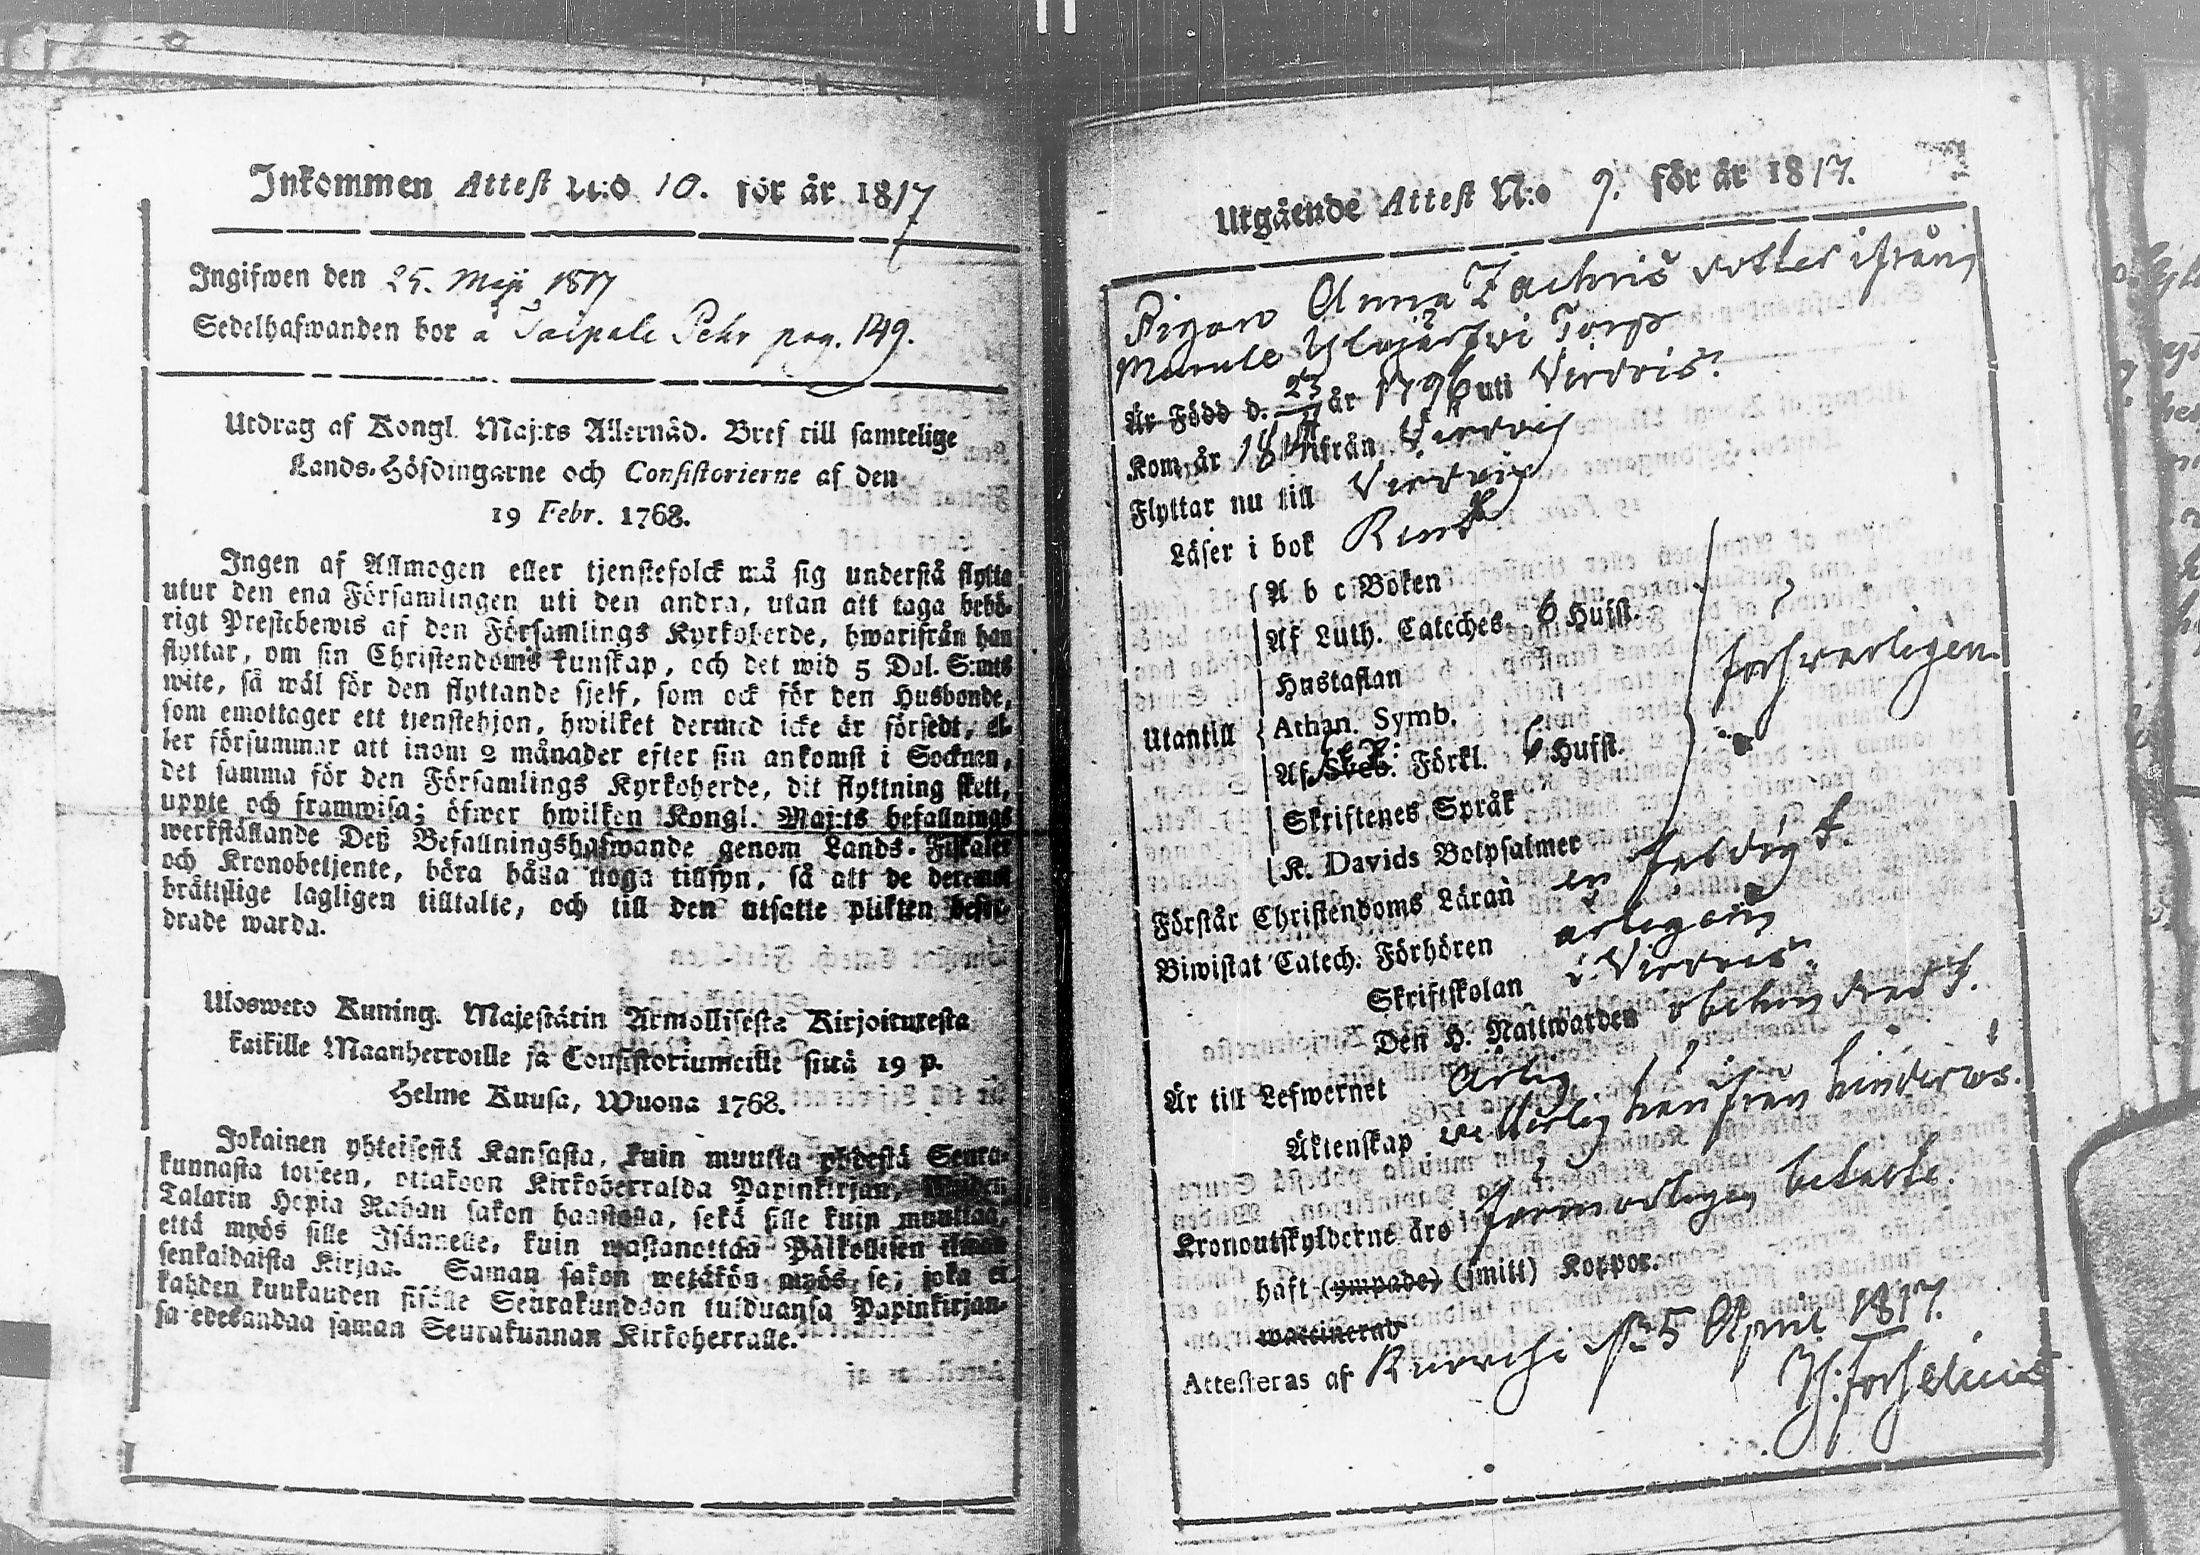 Inkommen Attest N:o 10. för år 1817
Ingifwen den 25. Maji 1817
Sedelhafwanden bor å Taipale Pehr pag. 149.
Utdrag af Kongl. Maj:ts Allernåd. Bref till samtelige
Lands-Höfdingarne och Consistorierne af den
19 Febr. 1768.
Ingen af Allmogen eller tjenstefolck må sig understå flytta
utur den ena Församlingen uti den andra, utan att taga behö-
rigt Prestebewis af den Församlings Kyrkoherde, hwarifrån han
flyttar, om sin Christendoms kunskap, och det wid 5 Dal. S:mts
wite, så wäl för den flyttande sjelf, som ock för den Husbonde,
som emottager ett tjenstehjon, hwilket dermed icke är försedt, el-
ler försummar att inom 2 månader efter sin ankomst i Socknen,
det samma för den Församlings Kyrkoherde, dit flyttning skett,
uppte och framwisa; öfwer hwilken Kongl. Maj:ts befallnings
werkställande Deß Befallningshafwande genom Lands-Fiskaler
och Kronobetjente, böra hålla noga tillsyn, så att de deremot
bråttslige lagligen tilltalte, och till den utsatte plikten befor-
drade warda.
Ulosweto Kuning. Majestätin Armollisesta Kirjoituxesta
kaikille Maanherroille ja Consistoriumeille siitä 19 p.
Helme Kuusa, Wuona 1768.
Jokainen yhteisestä Kansasta, kuin muutta yhdestä Seura-
kunnasta toiseen, ottakoon Kirkoherralda Papinkirjan, Wiiden
Talarin Hopia Rahan sakon haastolla, sekä sille kuin muuttaa,
että myös sille Isännelle, kuin wastanottaa Pälkollisen ilman
senkaldaista Kirjaa. Saman sakon wetäkön myös se, joka ei
kahden kuukauden sisälle Seurakundaan tulduansa Papinkirjan-
sa edesandaa saman Seurakunnan Kirkoherralle.
Utgående Attest N:o 9. för år 1817.
Pigan Anna Zachris dotter ifrån
Ylojärfwi Torp
Är Född d. 23 år 1796 uti Wirdois.
Kom år ifrån Wirdois
Flyttar nu till Wirdois
Läser i bok Rent
A b c Boken
Af Luth. Cateches. 6 Hufst.
Hustaflan
Utantill Athan. Symb. försvarligen
Af Sveb. Förkl. 6 Hufst.
Skriftenes Språk
K. Davids Botpsalmer
Förstår Christendoms Läran
Biwistat Catech. Förhören årligen
Skriftskolan i Wirdois.
Den H. Nattwarden obehindradt.
Är till Lefwernet Ärlig
Äktenskap ifrån hinder
Kronoutskylderne äro behalte.
haft (ympade) (smitt) Koppor.
waccinerad
Attesteras af Ruovesi d. 5 April 1817.